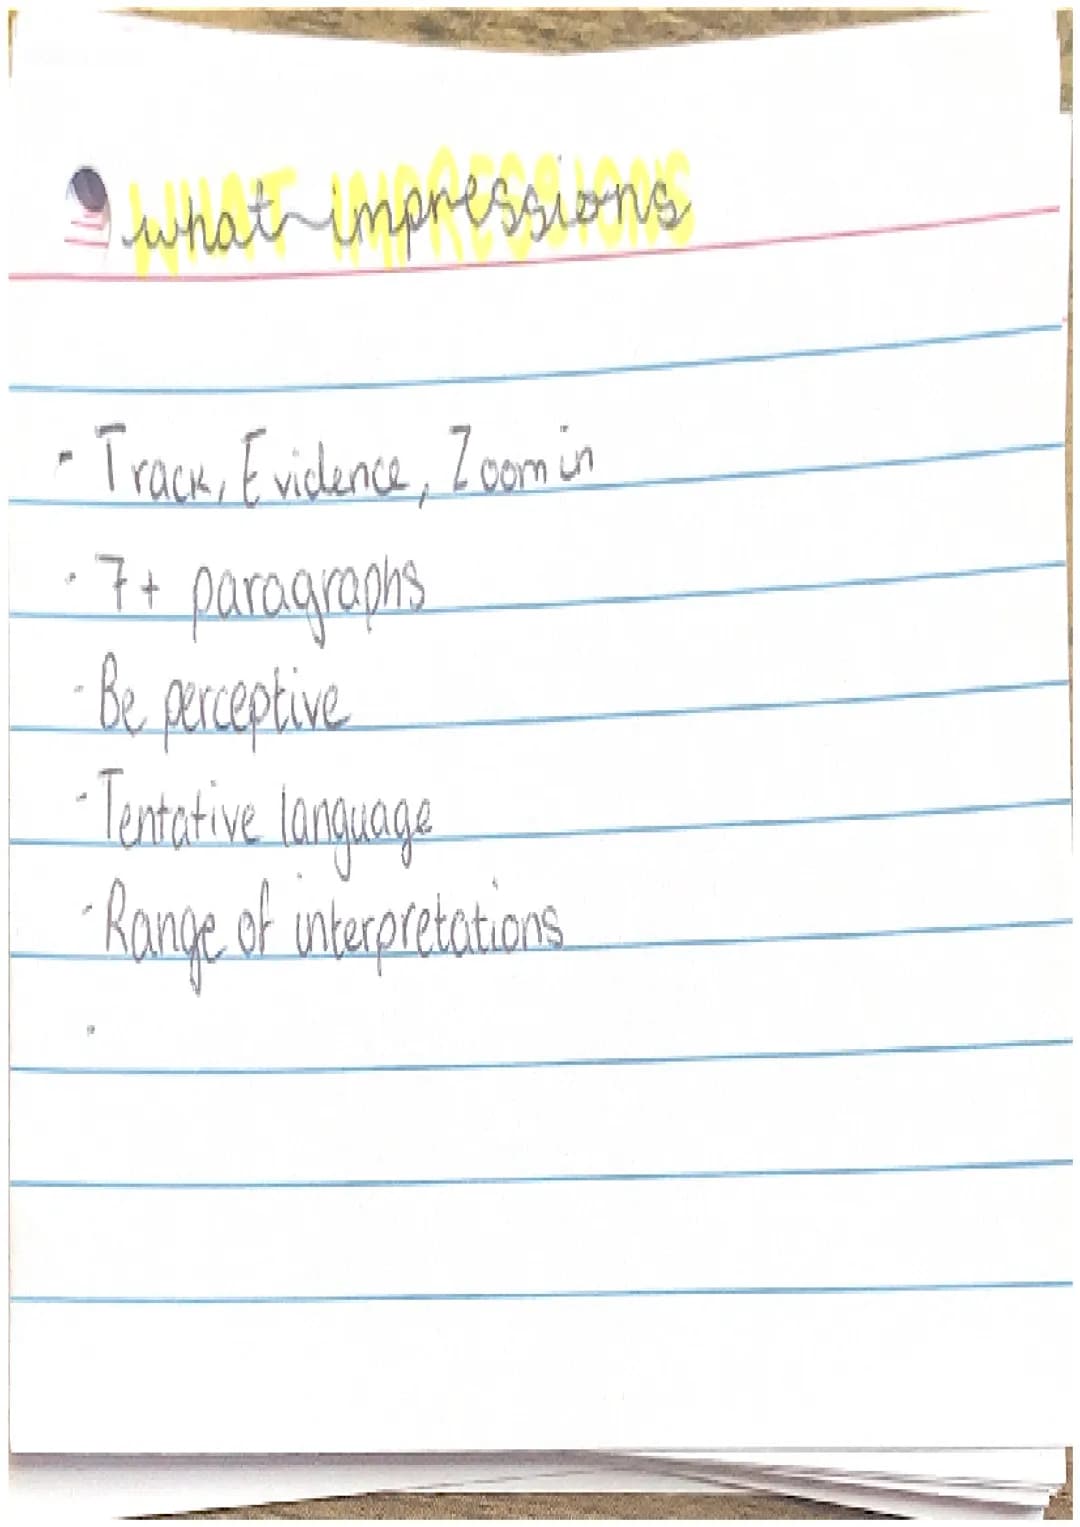 WHAT IMPRESSIONS
what impressions
- Track, Evidence, Zoom in
- 7+ paragraphs
- Be perceptive
- Tentative language
- Range of interpretations